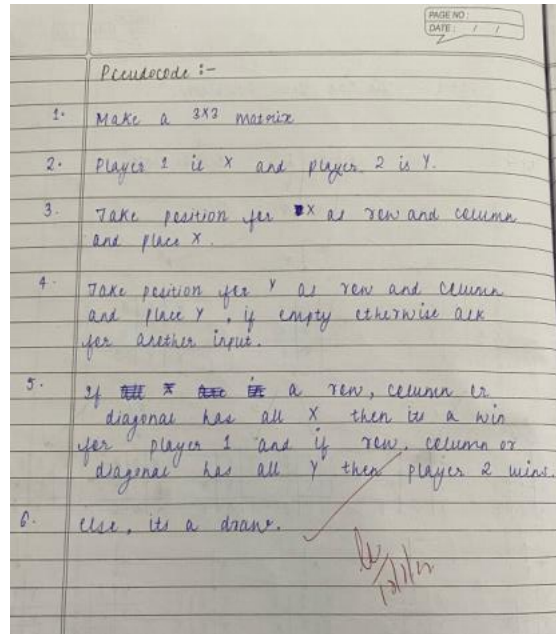 PAGE NO:
DATE: / /
Pseudocode :-
1. Make a 3x3 matrix
2. Player 1 is X and player 2 is Y.
3. Take position for X as row and column
and place X.
4. Take position for Y as row and column
and place Y, if empty otherwise ask
for another input.
5. If a row, column or
diagonal has all X then its a win
for player 1 and if row, column or
diagonal has all Y then player 2 wins.
6. Else, its a draw.